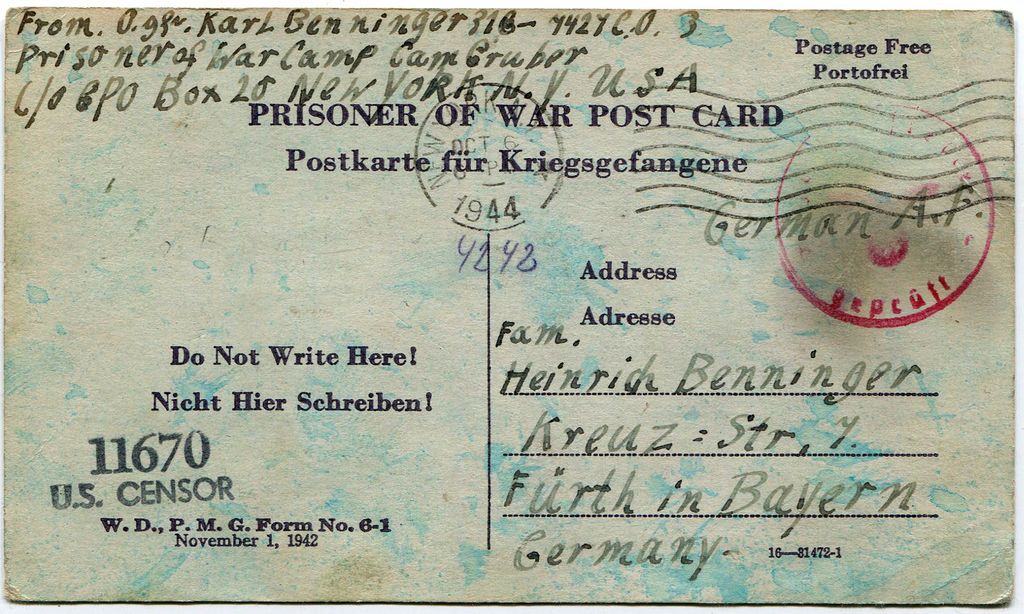 From. O.gfr. Karl Benninger 31G- 7427 C.O. 3
Prisoner of War Camp Cam Gruber
C/o GPO Box 20 New York N.Y. USA
Postage Free
Portofrei
PRISONER OF WAR POST CARD
Postkarte für Kriegsgefangene
NEW YORK, N.Y.
OCT 6
1944
German A.F.
geprüft
4242
Address
Adresse
Fam.
Heinrich Benninger
Kreuz=Str, 7.
Fürth in Bayern
Germany-
Do Not Write Here!
Nicht Hier Schreiben!
11670
U.S. CENSOR
W. D., P. M. G. Form No. 6-1
November 1, 1942
16—31472-1